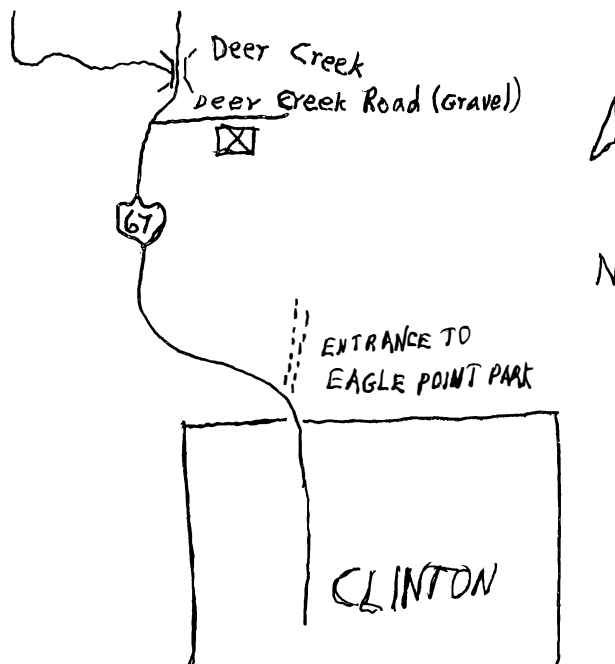 Deer Creek
Deer Creek Road (Gravel)
67
N
ENTRANCE TO
EAGLE POINT PARK
CLINTON